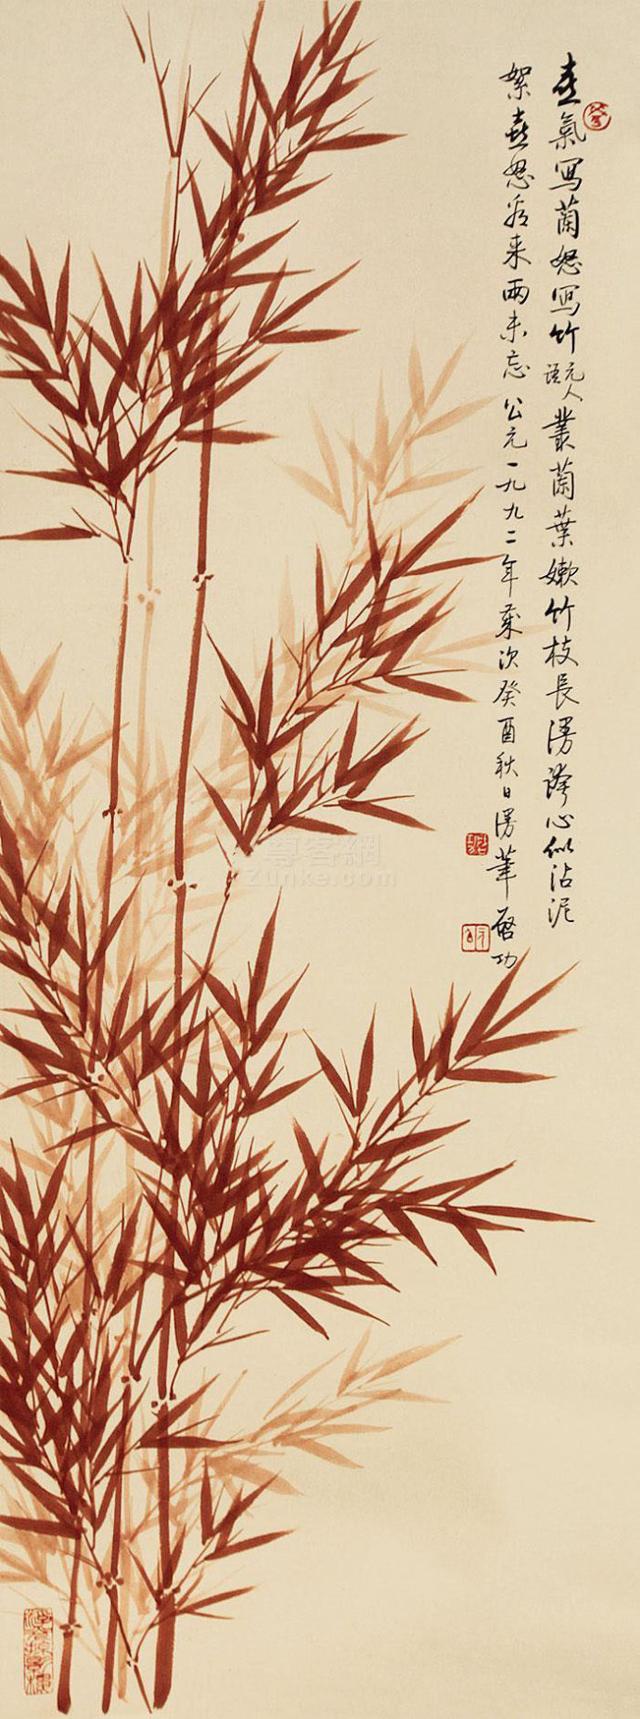 喜氣寫蘭怒寫竹元人語叢蘭葉嫩竹枝長漫誇心似沾泥
絮喜怒看来兩未忘公元一九九二年歲次癸酉秋日漫筆啓功
尊客網
Zunke.com